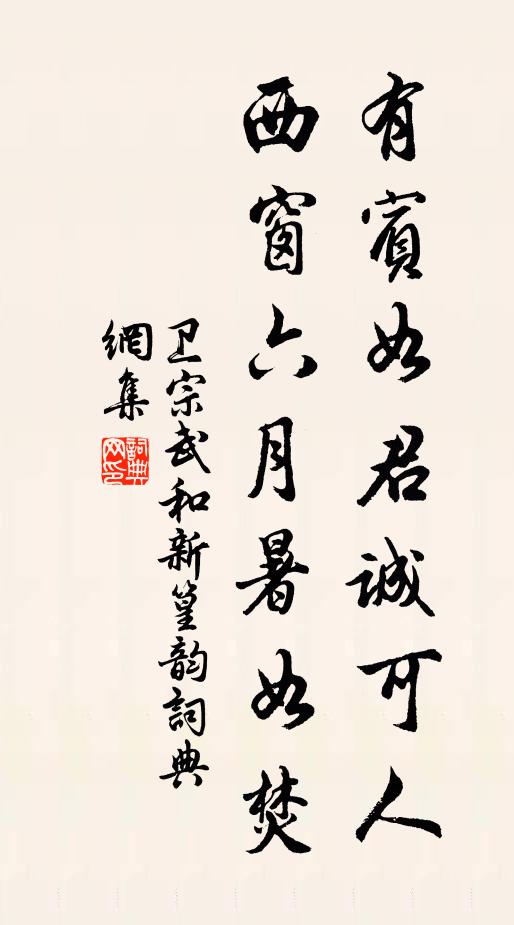 有賓如君誠可人
西窗六月暑如焚
卫宗武和新篁韵詞典
網集
詞典网印